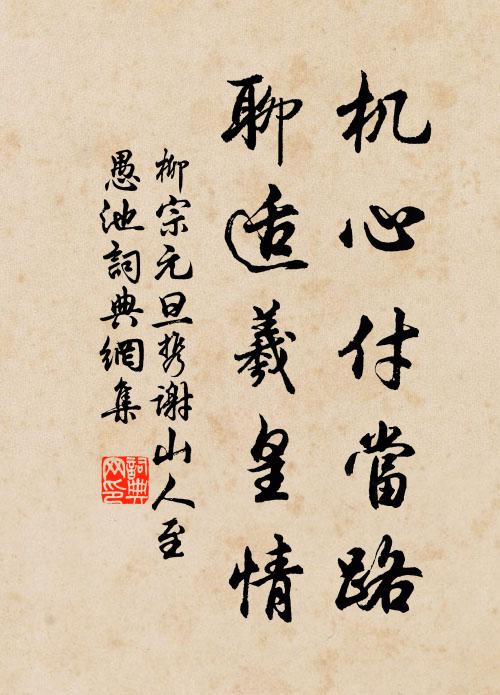 机心付當路
聊适羲皇情
柳宗元旦攜謝山人至
愚池詞典網集
詞典网印